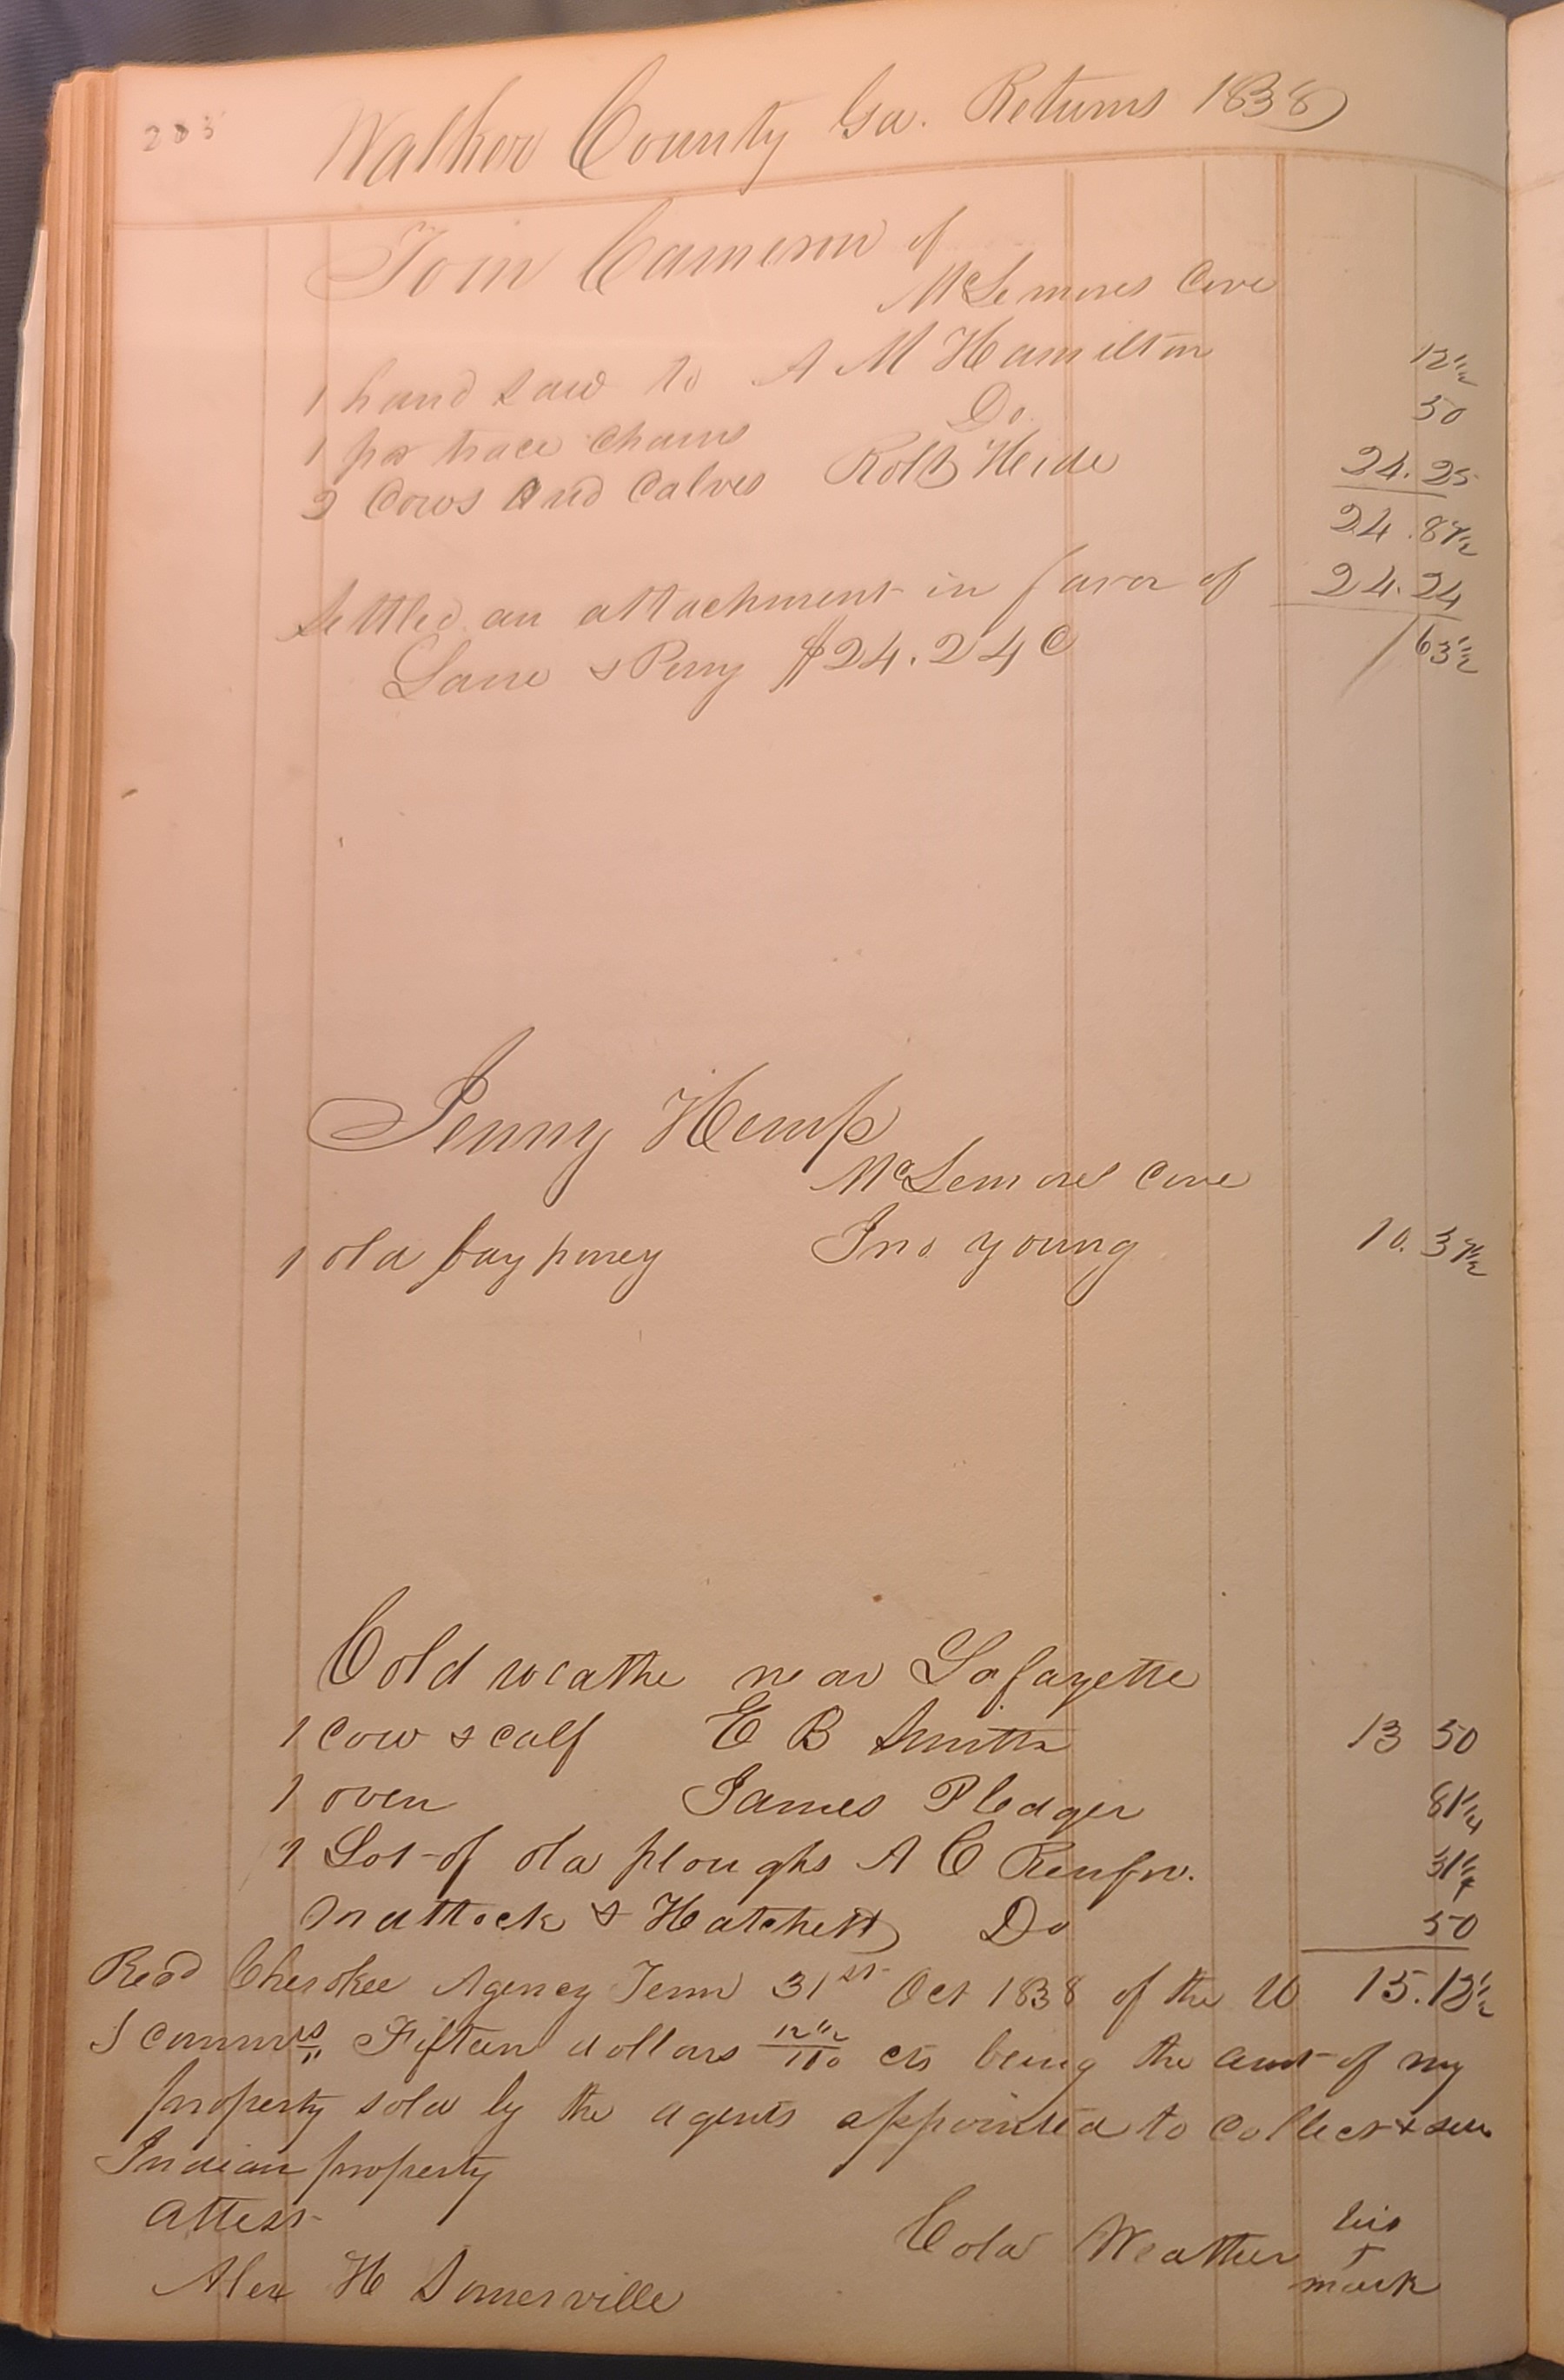 203
Walker County Ga. Returns 1838
Tom Cameron of
McLemores Cove
1 hand saw to A M Hamilton 12 1/2
1 pr trace chains Do 50
2 Cows And Calves Robt Heide 24.25
24.87 1/2
Settled an attachment in favor of 24.24
Lane & Perry $24.24c / 63 1/2
Jenny Hemp
McLemores Cove
1 old bay poney Jno Young 10.37 1/2
Cold weathe near Lafayette
1 Cow & calf E B Smith 13 50
1 oven James Pledger 81 1/4
1 Lot of old ploughs A C Renfro. 31 1/4
Mattock & Hatchett Do 50
Recd Cherokee Agency Tenn 31st Oct 1838 of the U 15.12 1/2
S Commrs Fifteen dollars 12 1/2/100 cts being the amt of my
property sold by the agents appointed to collect & sell
Indian property
Attest
Cold Weather his
+
mark
Alex H Somerville